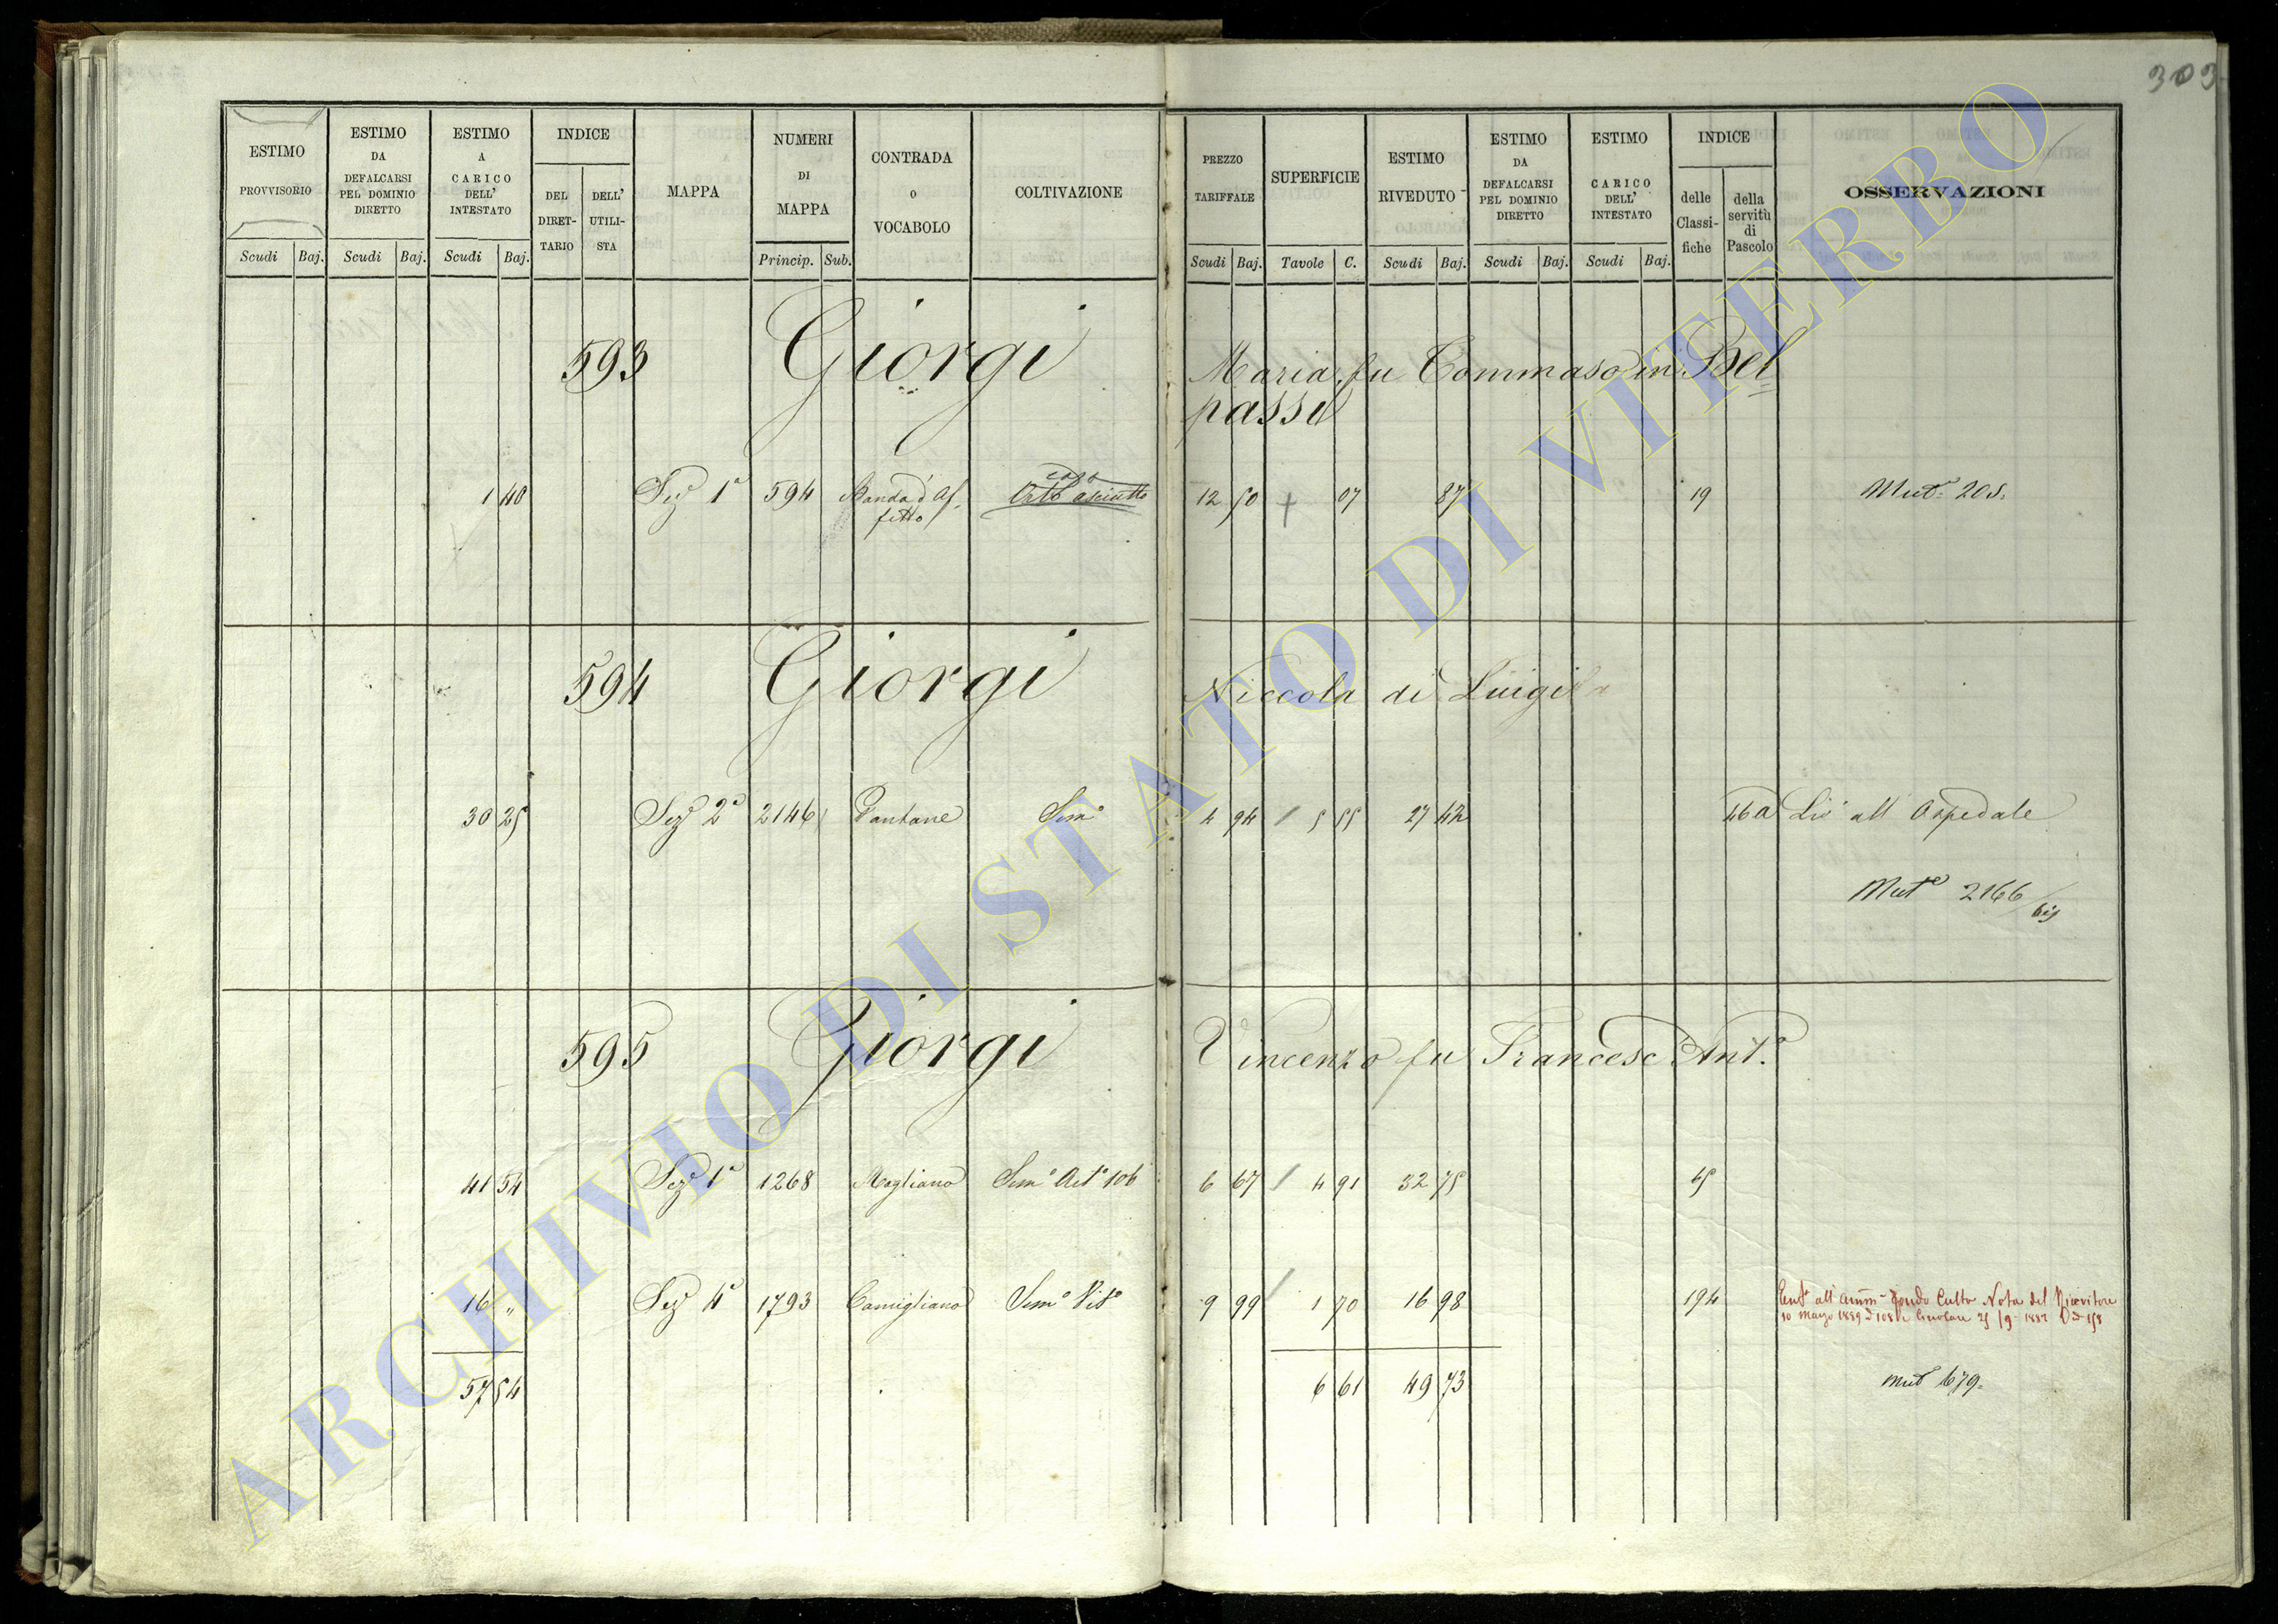 303
ESTIMO PROVVISORIO Scudi Baj.
ESTIMO DA DEFALCARSI PEL DOMINIO DIRETTO Scudi Baj.
ESTIMO A CARICO DELL' INTESTATO Scudi Baj.
INDICE DEL DIRETTARIO DELL' UTILISTA
MAPPA
NUMERI DI MAPPA Princip. Sub.
CONTRADA O VOCABOLO
COLTIVAZIONE
PREZZO TARIFFALE Scudi Baj.
SUPERFICIE Tavole C.
ESTIMO RIVEDUTO Scudi Baj.
ESTIMO DA DEFALCARSI PEL DOMINIO DIRETTO Scudi Baj.
ESTIMO CARICO DELL' INTESTATO Scudi Baj.
INDICE delle Classifiche della servitù di Pascolo
OSSERVAZIONI
593 Giorgi Maria fu Tommaso in Bel
passi
casa
1 40 Sez.e 1a 594 Banda d'Af- Orto asciutto 12 50 07 87 19 Mut.e 205.
fitto
594 Giorgi Niccola di Luigi
30 25 Sez.e 2a 2146 Pantane Sem.o 4 94 5 55 27 42 46 a Liv.o all' Ospedale
Mut.e 2166 bis
595 Giorgi Vincenzo fu Francesc'Ant.o
41 54 Sez.e 1a 1268 Magliano Sem.o Ast.o 106 6 67 4 91 32 75 65
16 " Sez.e 4a 1793 Camigliano Sem.o Vit.o 9 99 1 70 16 98 194 all' Amm. Fondo Culto Nota del Ricevitore
10 Marzo 1889 Circolare 25/9 1882
57 54 6 61 49 73 mut 1679.
ARCHIVIO DI STATO DI VITERBO